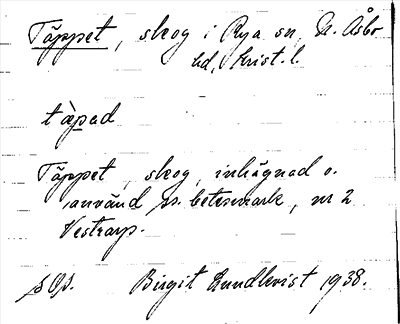 Täppet, skog i Rya sn, N. Åsbo
hd, Krist. l.
tàpad
Täppet, skog, inhägnad o.
använd ss. betesmark, nr 2
Vestrarp.
Birgit Lundkvist 1938.